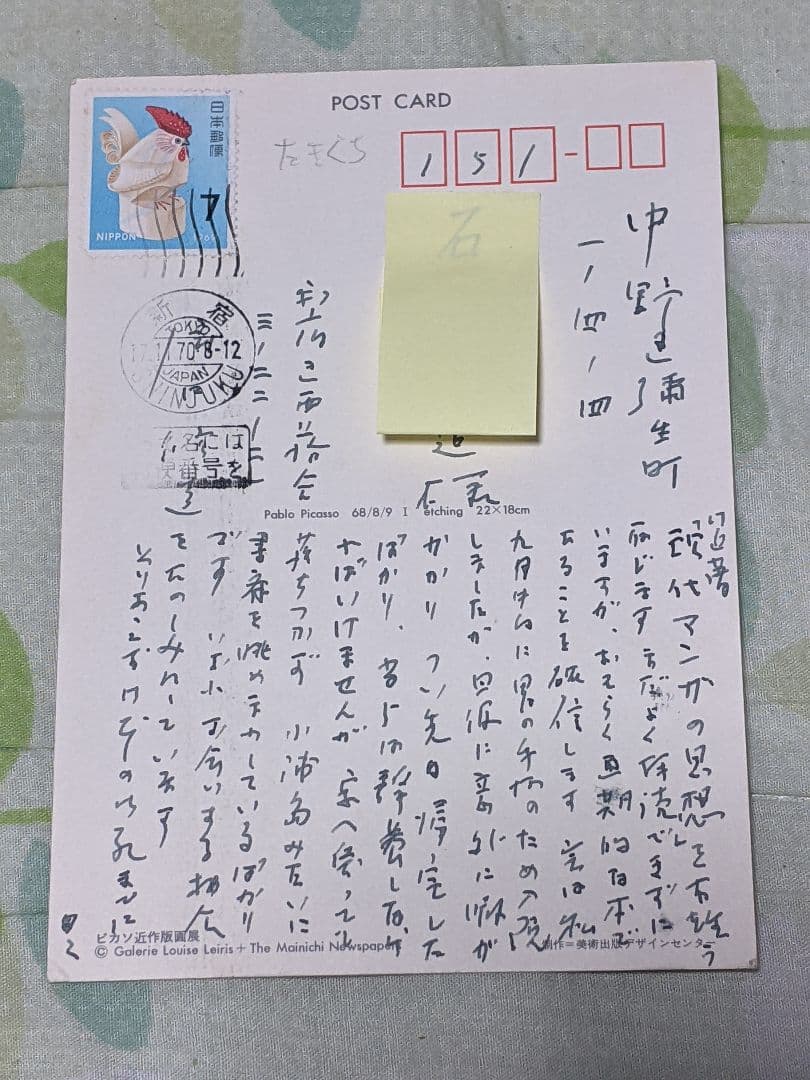 POST CARD
日本郵便
NIPPON
1969
たきぐち
151-
中野区弥生町
一ノ四ノ四
石
道
新宿区西落合
三ノ二
新宿
TOKYO
17.11.70 8-12
JAPAN
SHINJUKU
名には
番号を
Pablo Picasso 68/8/9 I etching 22×18cm
近著
現代マンガの思想を有難う
存じます まだよく拝読できずに
いますが、おそらく画期的な本で
あることを確信します 実は私
九月中旬に胃の手術のため入院
しましたが、回復に意外に暇が
かかり つい先日帰宅した
ばかり、当分は静養しなけ
ればいけませんが 家へ帰っても
落ちつかず 小浦島みたいに
書斎を眺めまわしているばかり
です いずれお会いする機会
をたのしみにしています
とりあえず御礼まで
ピカソ近作版画展
© Galerie Louise Leiris + The Mainichi Newspapers
制作=美術出版デザインセンター